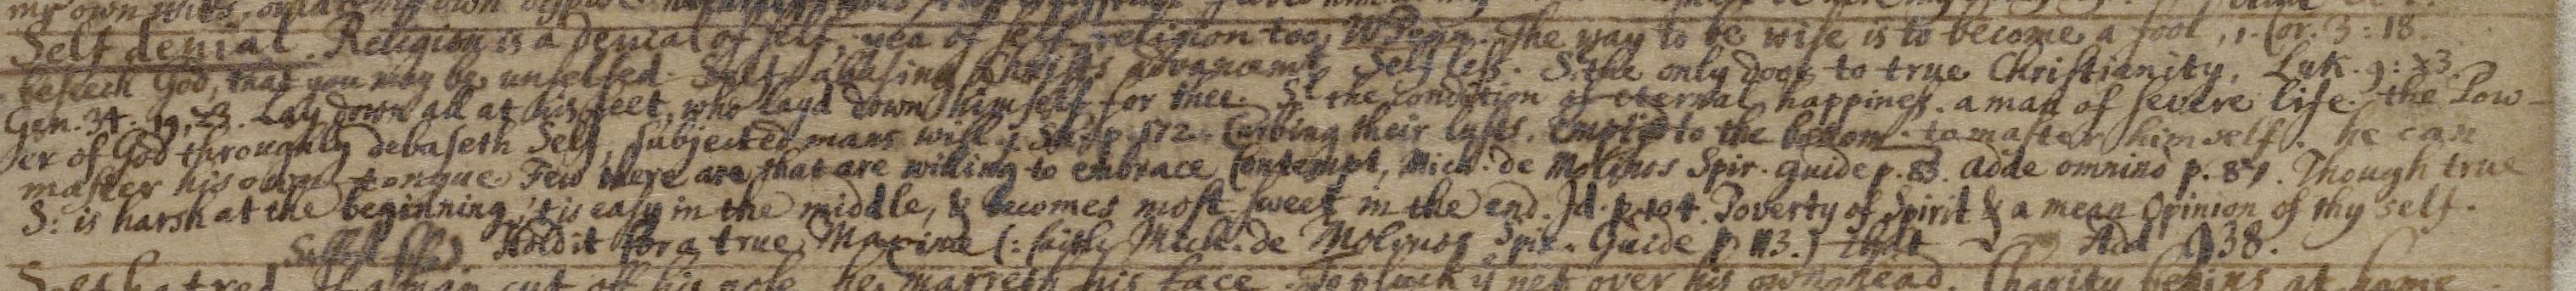 Self denial. Religion is a denial of self; yea of self-religion too, W Penn. The way to be wise is to become a fool, 1. Cor. 3: 18.
beseech God, that you may be unselfed. Self-abasing Christs advancemt. Self less. S. the only door to true Christianity, Luk. 9: 23
Gen. 34. 19, 23. Lay down all at his feet, who layd down himself for thee. S. the condition of eternal happiness. a man of severe life. the Pow-
er of God throughly debaseth Self, subjected mans will p. 172. Curbing their lusts. Emptied to the bottom. to master himself. he can
master his own tongue. Few there are that are willing to embrace Contempt, Mich. de Molinos Spir. guide p. 83. adde omnino p. 87. Though true
S: is harsh at the beginning, 't is easy in the middle, & becomes most sweet in the end. Id. p. 104. Poverty of Spirit & a mean Opinion of thy self.
Hold it for a true Maxime (: saith Mich. de Molinos Spir. Guide p 113.) that Add 938.
Self hatred. If a man cut off his nose, he marreth his face. To pluck ye nest over his own head. Charity begins at home